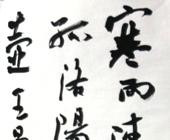 寒雨連
孤洛陽
壺王昌